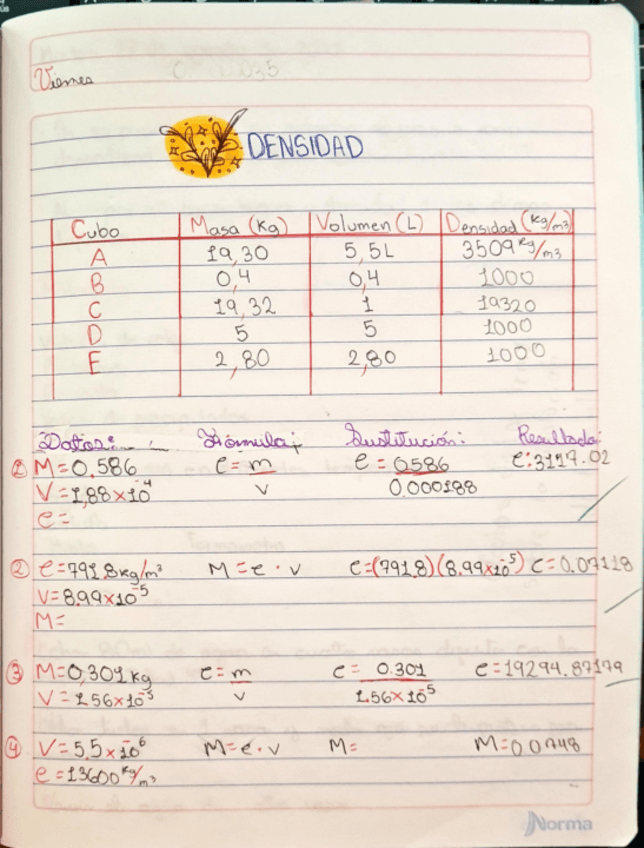 Viernes
DENSIDAD
Cubo Masa (Kg) Volumen (L) Densidad (Kg/m³)
A 19,30 5,5L 3509 Kg/m3
B 0,4 0,4 1000
C 19,32 1 19320
D 5 5 1000
E 2,80 2,80 1000
Datos: Fórmula: Sustitución: Resultado:
① M=0.586 e=m e=0.586 e:3117.02
V=1,88×10⁻⁴ v 0.000188
e=
② e=791.8kg/m³ M=e·v e=(791.8)(8.99×10⁻⁵) e=0.07118
V=8.99×10⁻⁵
M=
③ M=0,301kg e=m e= 0.301 e=19294.87179
V=1.56×10⁻⁵ v 1.56×10⁻⁵
④ V=5.5×10⁻⁶ M=e·v M= M=0.0748
e=13600Kg/m3
Norma